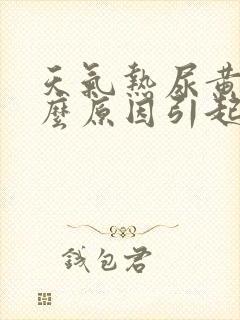 天氣熱尿黃
麼原因引起
錢包君